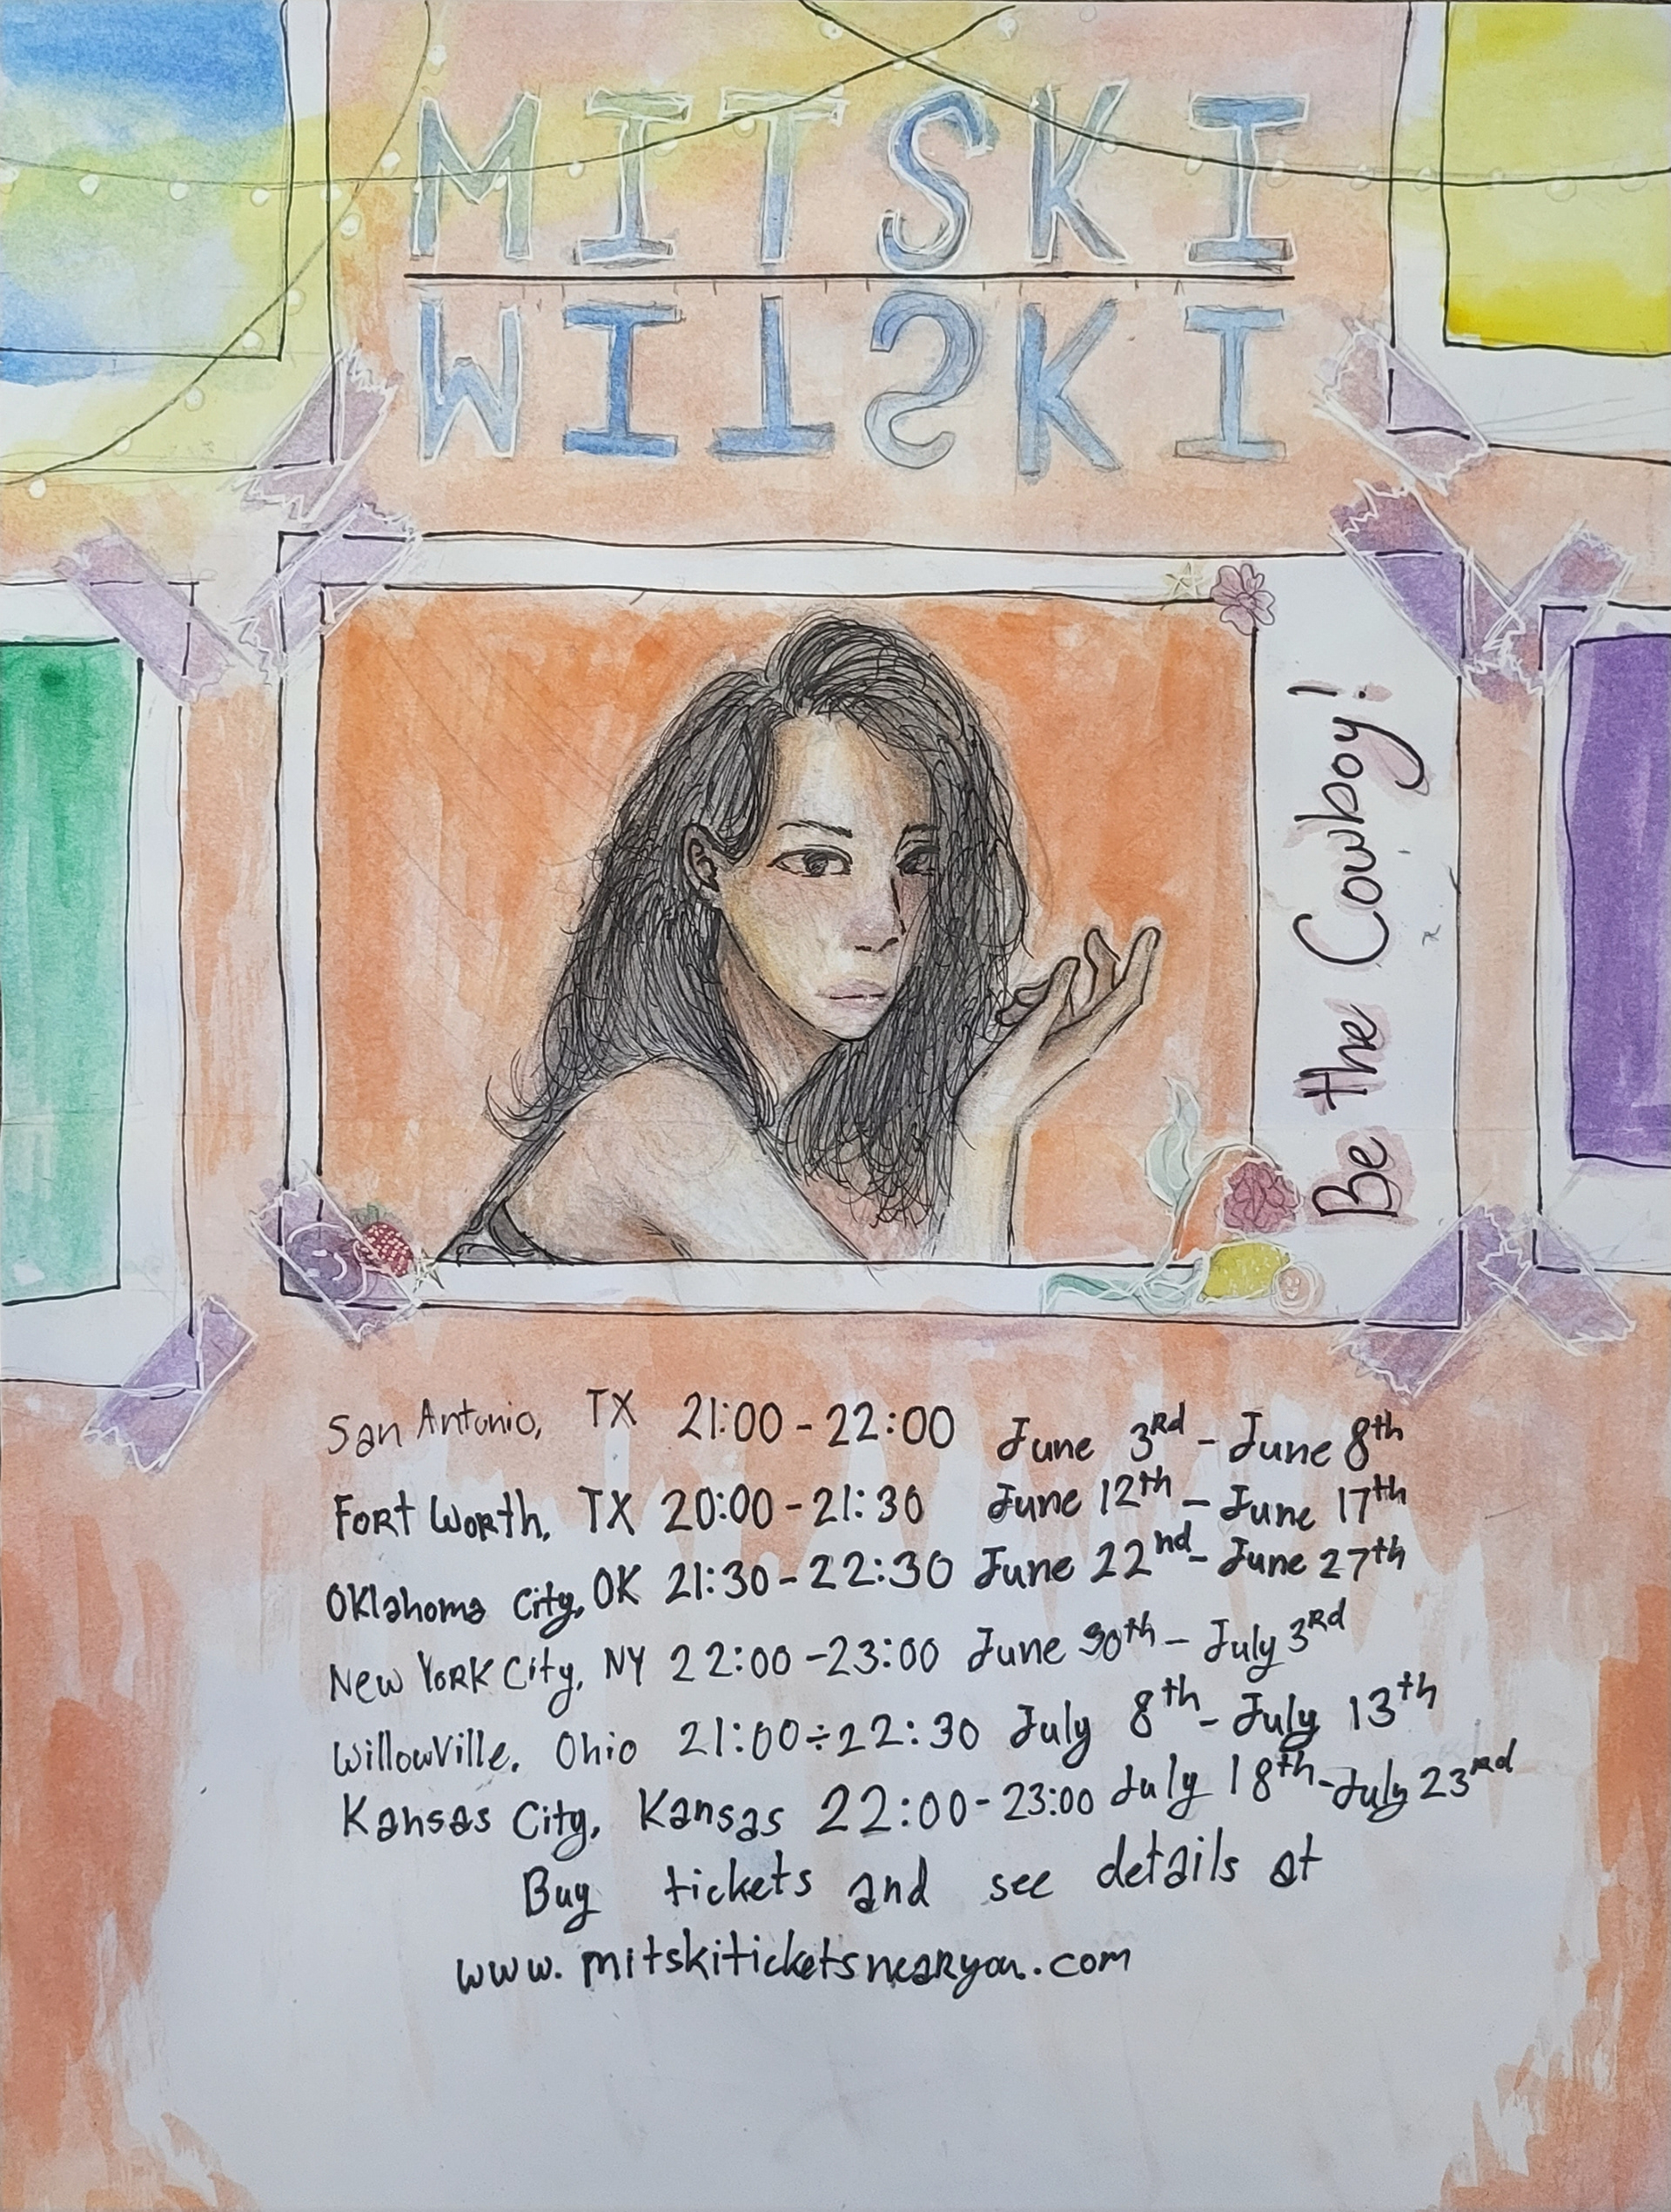 MITSKI
MITSKI
Be the Cowboy!
San Antonio, TX 21:00 - 22:00 June 3Rd - June 8th
Fort Worth, TX 20:00 - 21:30 June 12th - June 17th
Oklahoma City, OK 21:30 - 22:30 June 22nd - June 27th
New York City, NY 22:00 - 23:00 June 30th - July 3Rd
Willowville, Ohio 21:00 ÷ 22:30 July 8th - July 13th
Kansas City, Kansas 22:00 - 23:00 July 18th - July 23Rd
Buy tickets and see details at
www.mitskiticketsnearyou.com